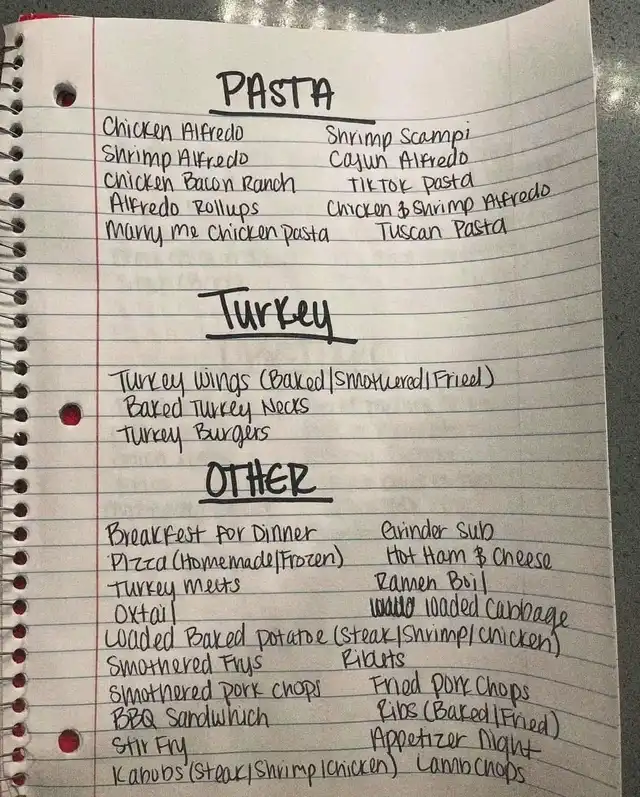 PASTA
Chicken Alfredo Shrimp Scampi
Shrimp Alfredo Cajun Alfredo
Chicken Bacon Ranch TikTok pasta
Alfredo Rollups Chicken & Shrimp Alfredo
Marry me chicken pasta Tuscan Pasta
Turkey
Turkey wings (Baked/Smothered/Fried)
Baked Turkey Necks
Turkey Burgers
OTHER
Breakfest for Dinner Grinder Sub
Pizza (Homemade/Frozen) Hot Ham & Cheese
Turkey melts Ramen Boil
Oxtail loaded cabbage
Loaded Baked potatoe (Steak/Shrimp/Chicken)
Smothered Frys Riblets
Smothered pork chops Fried pork chops
BBQ Sandwhich Ribs (Baked/Fried)
Stir Fry Appetizer Night
Kabobs (Steak/Shrimp/Chicken) Lamb Chops